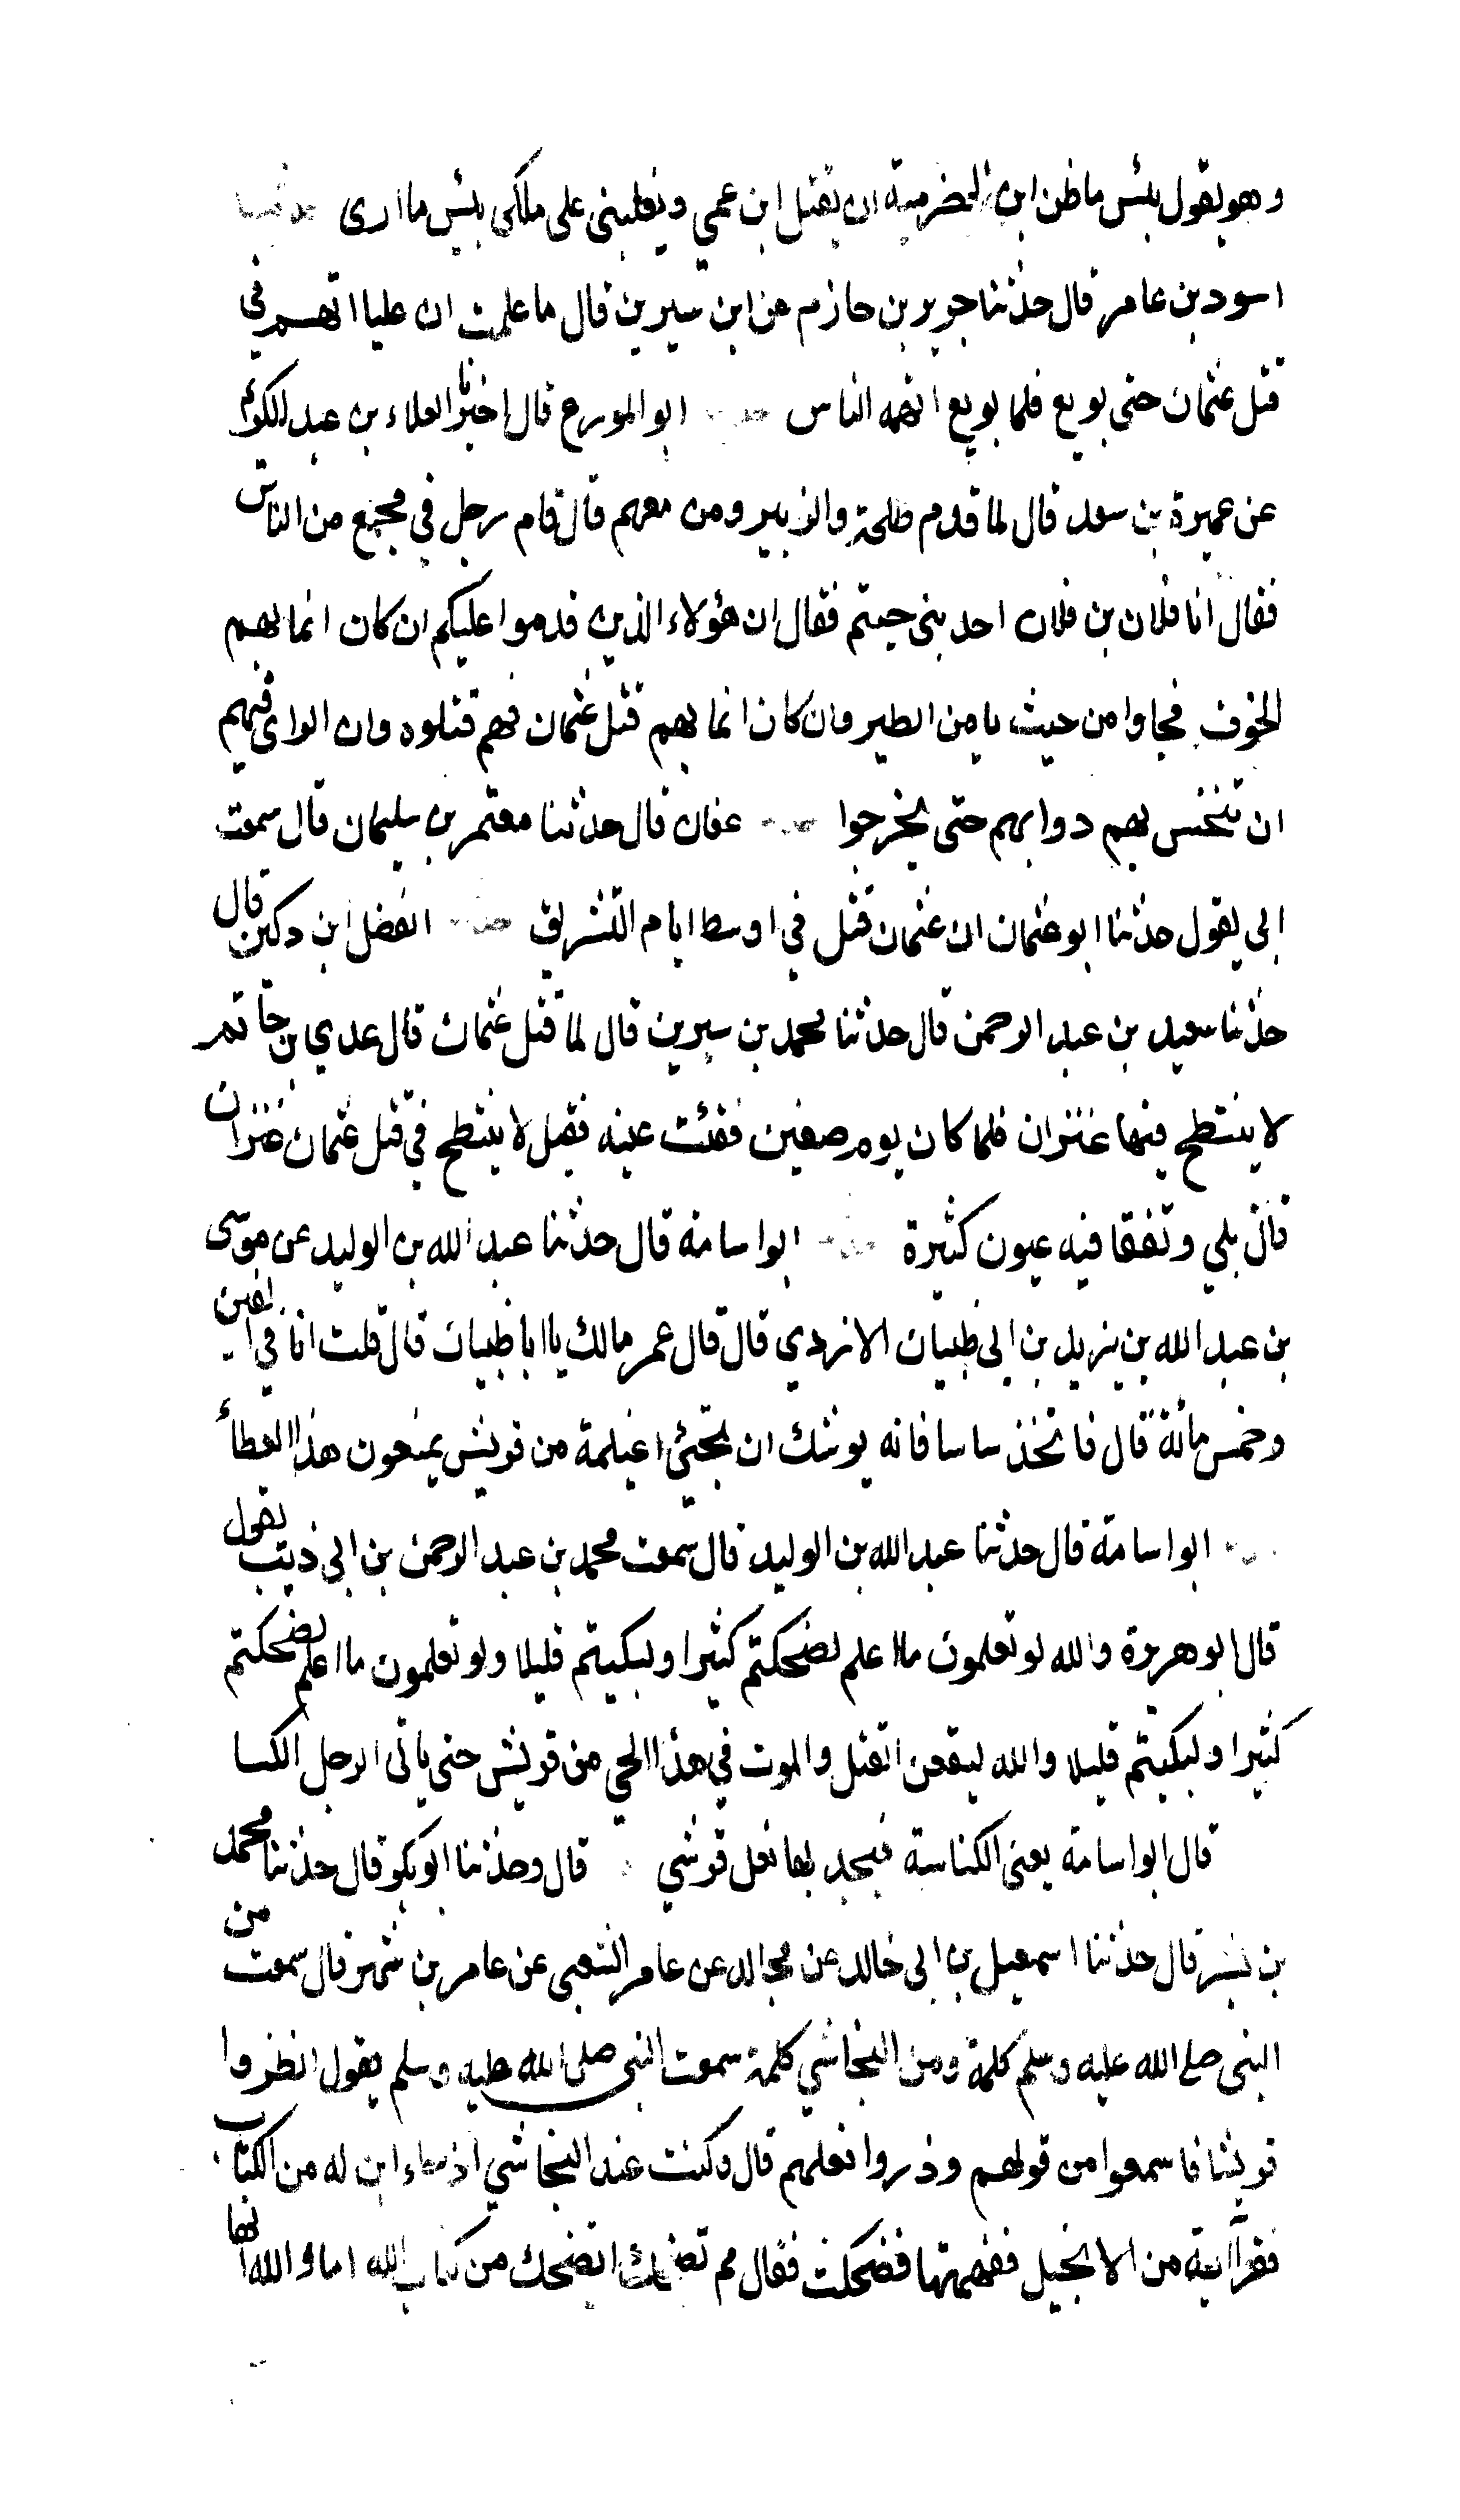 وهو يقول بئس ما ظن ابن الحضرمية ان يقتل ابن عمي ويغلبنى على ملكى بئس ما ارى حدثنا
اسود بن عامر قال حدثنا جرير بن حازم عن ابن سيرين قال ما علمت ان عليا اتهم في
قتل عثمان حتى بويع فلما بويع اتهمه الناس حدثنا ابو المورع قال اخبرنا العلاء بن عبد الكريم
عن عميرة بن سعد قال لما قدم طلحة والزبير ومن معهم قال قام رجل في مجمع من الناس
فقال انا فلان بن فلان احد بنى جيثم فقال ان هؤلاء الذين قدموا عليكم ان كان انما بهم
الخوف فجاوا من حيث يامن الطير وان كان انما بهم قتل عثمان فهم قتلوه وان الراى فيهم
ان تنخس بهم دوابهم حتى يخرجوا حدثنا عفان قال حدثنا معتمر بن سليمان قال سمعت
ابى يقول حدثنا ابو عثمان ان عثمان قتل في اوسط ايام التشريق حدثنا الفضل ابن دكين قال
حدثنا سعيد بن عبد الرحمن قال حدثنا محمد بن سيرين قال لما قتل عثمان قال عدي بن حاتم
لا ينتطح فيها عنزان فلما كان يوم صفين فقئت عينه فقيل لا ينتطح في قتل عثمان عنزان
قال بلي وتفقا فيه عيون كثيرة حدثنا ابو اسامة قال حدثنا عبد الله بن الوليد عن موسى
بن عبد الله بن يزيد بن ابى ظبيان الازدي قال قال عمر مالك يا ابا ظبيان قال قلت انا في الفين
وخمس مائة قال فاتخذ ساسا فانه يوشك ان تجئ اغيلمة من قريش يمنعون هذا العطأ
حدثنا ابو اسامة قال حدثنا عبد الله بن الوليد قال سمعت محمد بن عبد الرحمن بن ابى ذيب يقول
قال ابو هريرة والله لو تعلمون ما اعلم لضحكتم كثيرا ولبكيتم قليلا ولو تعلمون ما اعلم لضحكتم
كثيرا ولبكيتم قليلا والله ليقعن القتل والموت في هذا الحي من قريش حتى ياتى الرجل الكسا
قال ابو اسامة يعنى الكناسة فيجد بها نعل قرشي قال وحدثنا ابو بكر قال حدثنا محمد
بن بشر قال حدثنا اسمعيل بن ابى خالد عن مجالد عن عامر الشعبى عن عامر بن شهر قال سمعت من
النبى صلى الله عليه وسلم كلمة ومن النجاشي كلمة سمعت النبى صلى الله عليه وسلم يقول انظروا
قريشا فاسمعوا من قولهم وذروا فعلهم قال وكنت عند النجاشي اذ جاء ابن له من الكتاب
فقرأ آية من الانجيل ففهمتها فضحكت فقال مم تضحك اتضحك من كتاب الله اما والله انها